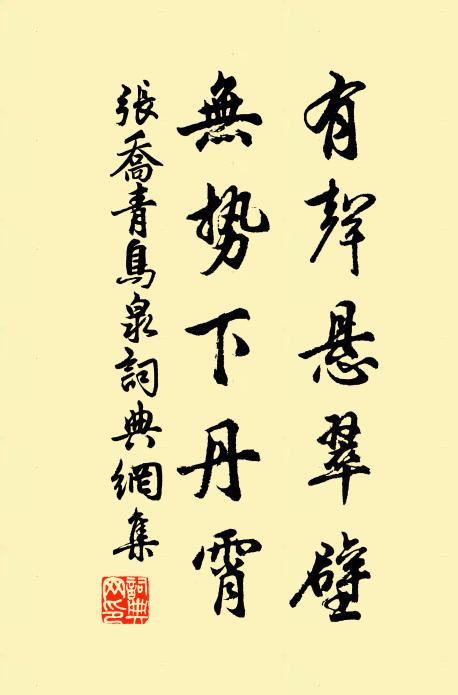 有聲悬翠壁
無势下丹霄
張喬青鳥泉詞典網集
詞典网印